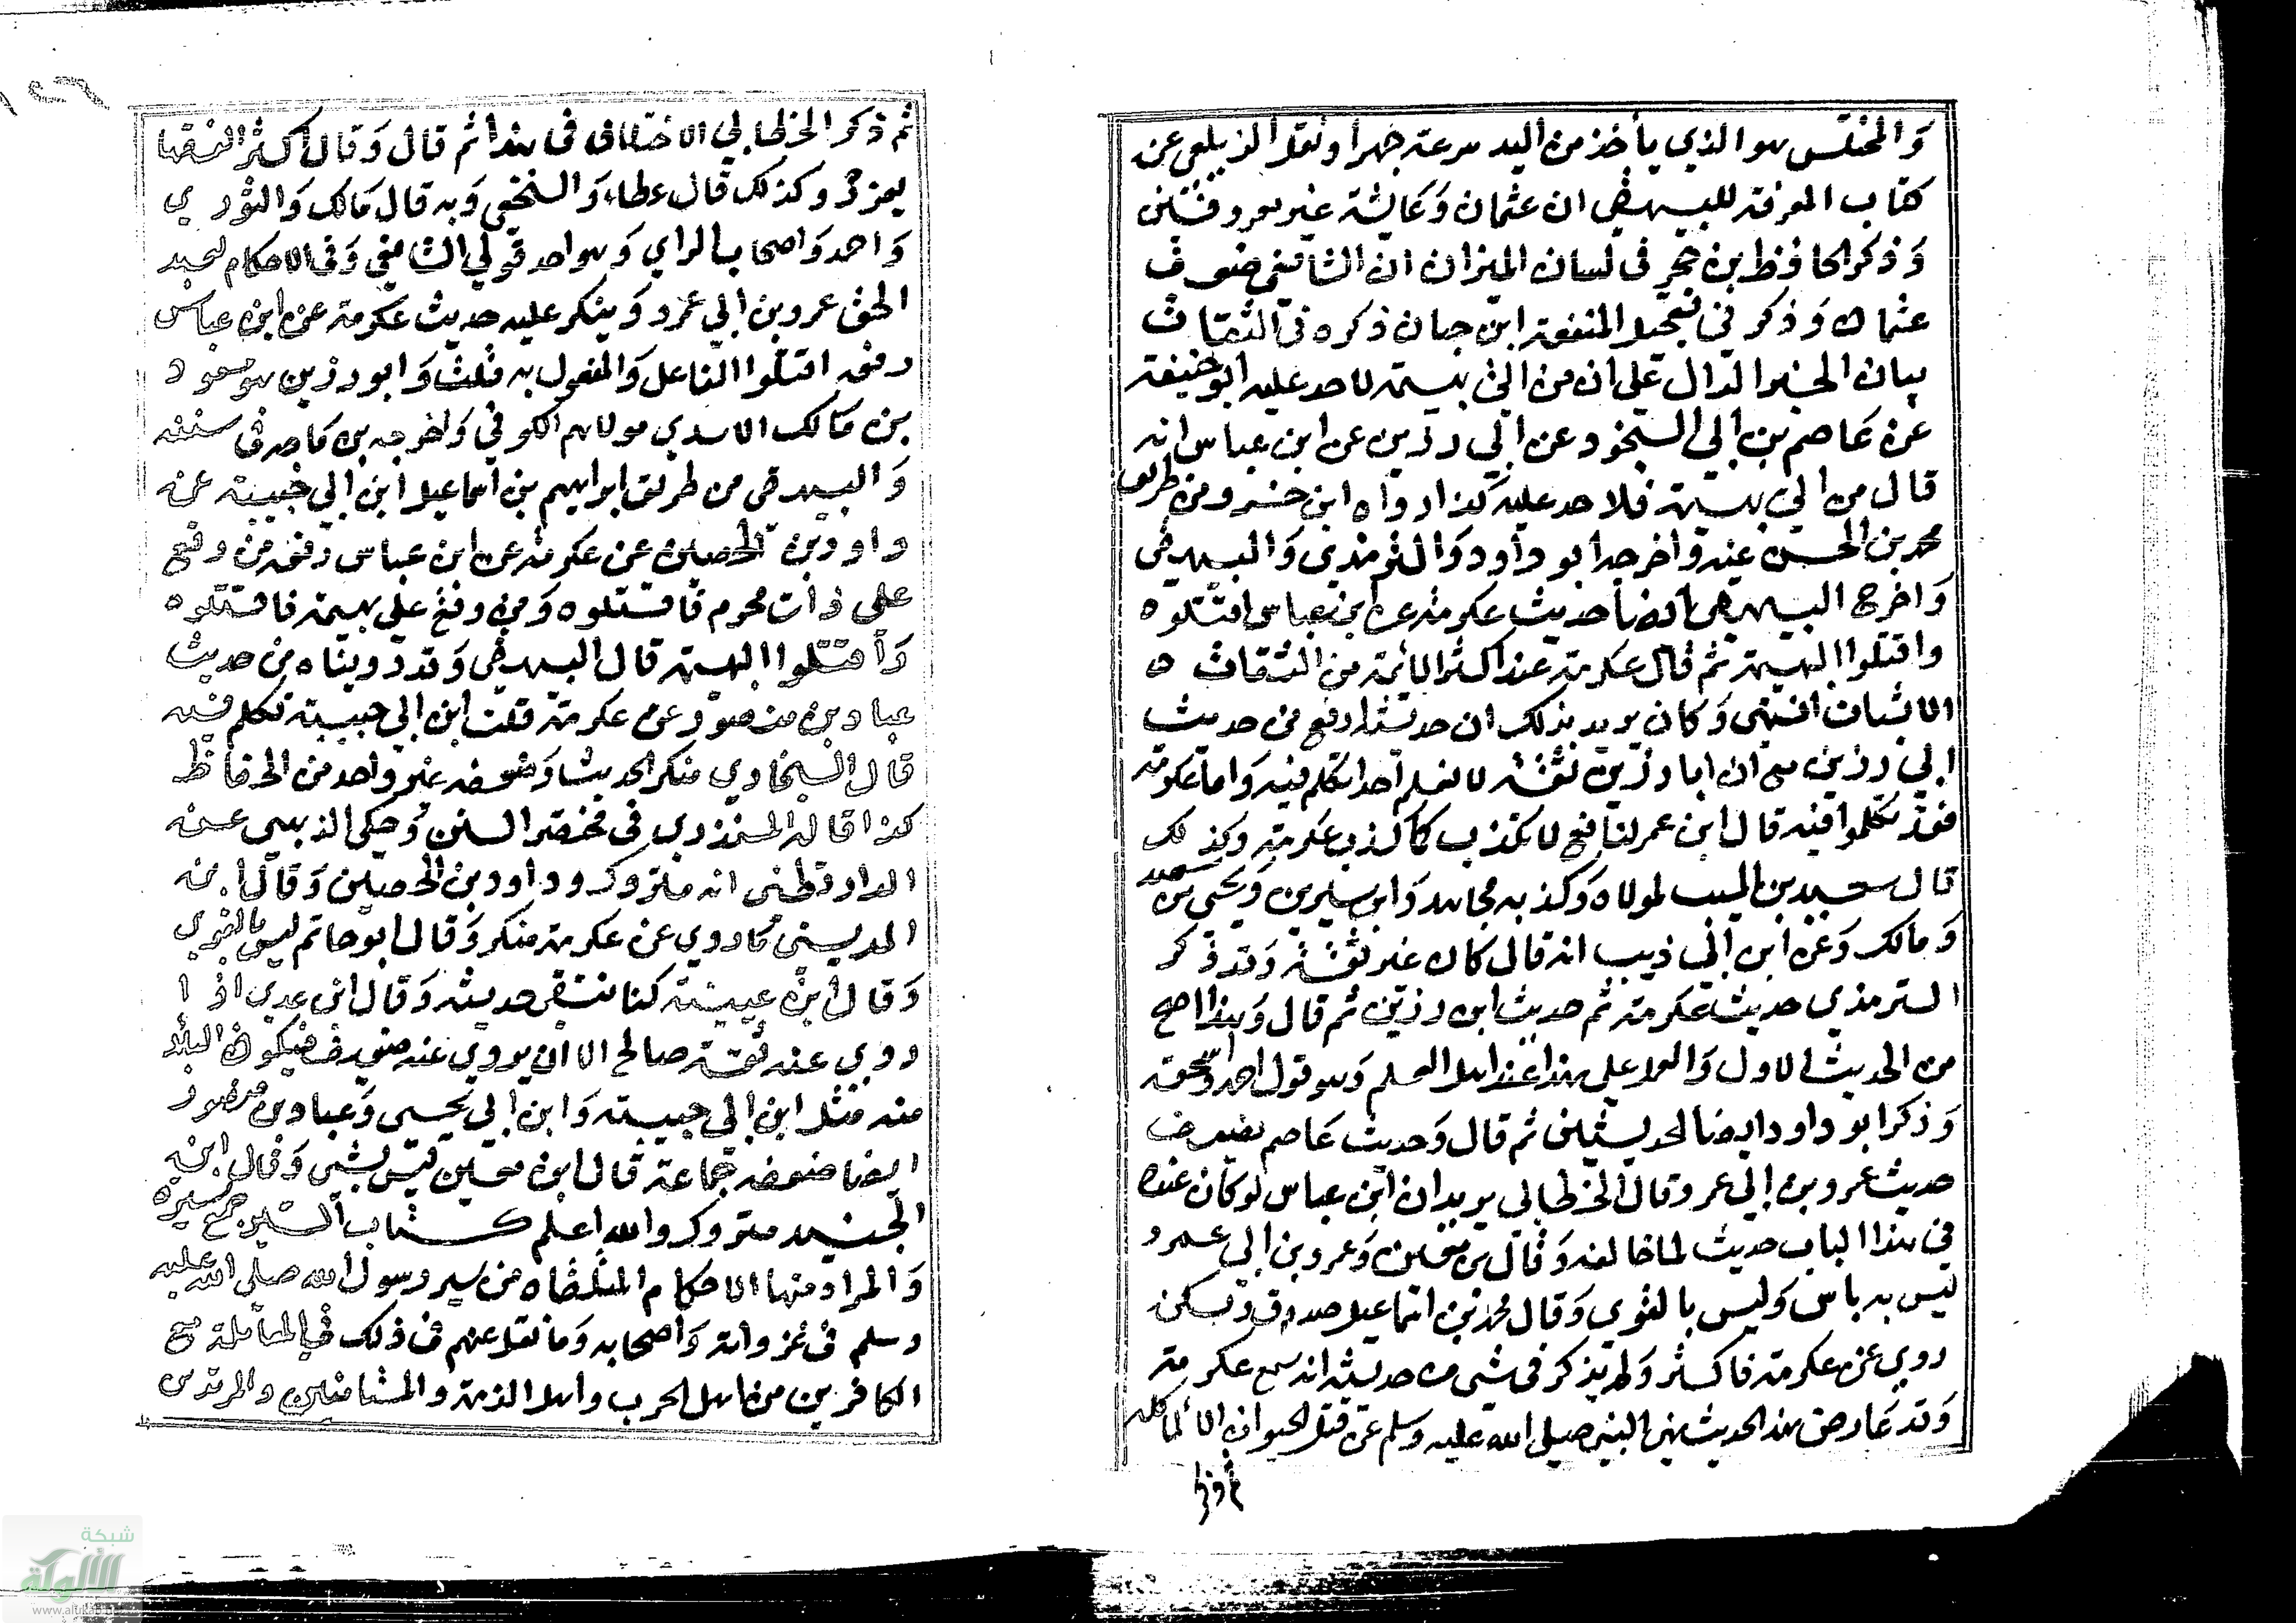 والمختلس هو الذي يأخذ من اليد سرعة جهرا ونقل الزيلعي عن
كتاب المعرفة للبيهقي ان عثمان وعايشة غير معروفين
وذكر الحافظ بن حجر في لسان الميزان ان الشافعي ضعف
عثمان وذكر في تعجيل المنفعة ابن حبان ذكره في الثقات
بيان الخبر الدال على ان من اتى بهيمة لا حد عليه ابو حنيفة
عن عاصم بن ابي النجود عن ابي رزين عن ابن عباس انه
قال من اتى بهيمة فلا حد عليه كذا رواه ابن خسرو من طريق
محمد بن الحسن عنه واخرجه ابو داود والترمذي والبيهقي
واخرج البيهقي ايضا حديث عكرمة عن ابن عباس اقتلوه
واقتلوا البهيمة ثم قال عكرمة عند اكثر الائمة من الثقات
الاثبات انتهى وكان يريد بذلك ان حديثه ارفع من حديث
ابي رزين مع ان ابا رزين ثقة لا نعلم احدا تكلم فيه واما عكرمة
فقد تكلموا فيه قال ابن عمر لنافع لا تكذب كما كذب عكرمة وكذلك
قال سعيد بن المسيب لمولاه وكذبه مجاهد وابن سيرين ويحيى بن سعيد
ومالك وعن ابن ابي ذيب انه قال كان غير ثقة وقد ذكر
الترمذي حديث عكرمة ثم حديث ابن رزين ثم قال وهذا اصح
من الحديث الاول والعمل على هذا عند اهل العلم وهو قول احمد واسحق
وذكر ابو داود ايضا الحديثين ثم قال وحديث عاصم يضعف
حديث عمرو بن ابي عمرو وقال الخطابي يريد ان ابن عباس لو كان عنده
في هذا الباب حديث لما خالفه وقال بن معين وعمرو بن ابي عمرو
ليس به باس وليس بالقوي وقال محمد بن اسماعيل صدوق ولكن
روي عن عكرمة فاكثر ولم يذكر في شي من حديثه انه سمع عكرمة
وقد عارض هذا الحديث نهي النبي صلى الله عليه وسلم عن قتل الحيوان الا لماكله
ثم ذكر الخطابي الاختلاف في هذا ثم قال وقال اكثر الفقها
يعزر وكذلك قال عطاء والنخعي وبه قال مالك والثوري
واحمد واصحاب الراي وهو احد قولي الشافعي وفي الاحكام لعبد
الحق عمرو بن ابي عمرو وينكر عليه حديث عكرمة عن ابن عباس
رفعه اقتلوا الفاعل والمفعول به قلت وابو رزين هو مسعود
بن مالك الاسدي مولاهم الكوفي واخرجه بن ماجه في سننه
والبيهقي من طريق ابراهيم بن اسماعيل ابن ابي حبيبة عن
داود بن الحصين عن عكرمة عن ابن عباس رفعه من وقع
على ذات محرم فاقتلوه ومن وقع على بهيمة فاقتلوه
واقتلوا البهيمة قال البيهقي وقد روينا ه من حديث
عباد بن منصور عن عكرمة قلت ابن ابي حبيبة تكلم فيه
قال السخاوي منكر الحديث وضعفه غير واحد من الحفاظ
كذا قاله المنذري في مختصر السنن وحكى الذهبي عن
الدارقطني انه متروك وداود بن الحصين وقال ابن
المديني ما روي عن عكرمة منكر وقال ابو حاتم ليس بالقوي
وقال ابن عيينة كنا نتقي حديثه وقال ابن عدي اذا
روي عنه ثقة صالح الا ان يروي عنه ضعيف فيكون البلاء
منه مثل ابن ابي حبيبة وابن ابي يحيى وعباد بن منصور
ايضا ضعفه جماعة قال ابن معين ليس بشي وقال ابن
الجنيد متروك والله اعلم كتاب السير جمع سيرة
والمراد منها الاحكام المتلقاه من سير رسول الله صلى الله عليه
وسلم في غزواته واصحابه وما نقل عنهم في ذلك في المعاملة مع
الكافرين من اهل الحرب واهل الذمة والمنافقين والمرتدين
شبكة
الألوكة
www.alukah.net